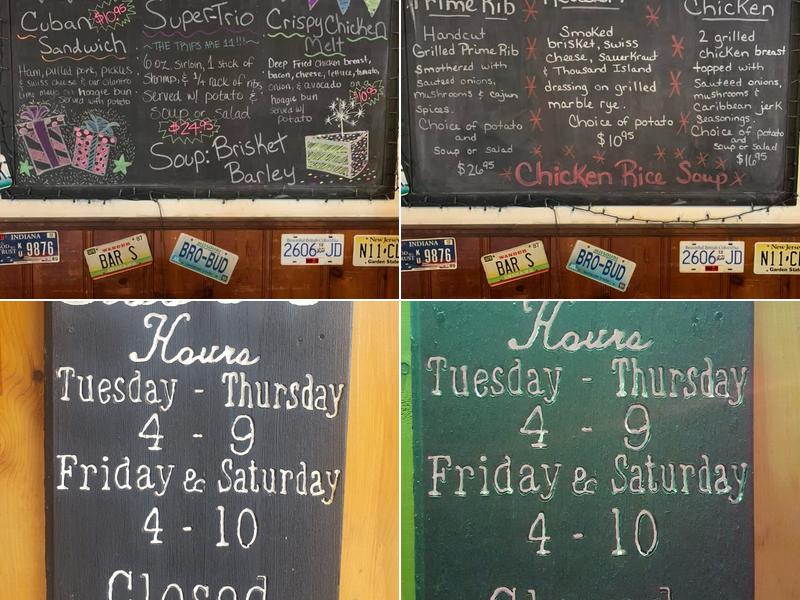 Cuban $10.95
Sandwich
Ham, pulled pork, pickles,
& swiss cheese & our cilantro
lime mayo on hoagie bun
Served with potato
Super-Trio
~ THE TRIPS ARE 11!!! ~
6 oz. sirloin, 1 stick of
Shrimp, & 1/4 rack of ribs
Served w/ potato &
soup or salad
$24.95
Soup: Brisket
Barley
Crispy Chicken
Melt
Deep Fried chicken breast,
bacon, cheese, lettuce, tomato,
onion, & avocado on
hoagie bun
Served w/
potato
$10.95
INDIANA
9876
WANDER
87
BAR S
BRO-BUD
Beautiful British Columbia
2606 JD
New Jersey
N11
Garden State
Prime Rib
Handcut
Grilled Prime Rib
Smothered with
sauteed onions,
mushrooms & cajun
spices.
Choice of potato
and
Soup or salad
$26.95
Smoked
brisket, swiss
cheese, sauerkraut
& Thousand Island
dressing on grilled
marble rye.
Choice of potato
$10.95
Chicken
2 grilled
chicken breast
topped with
Sauteed onions,
mushrooms &
Caribbean jerk
Seasonings.
Choice of potato
and
soup or salad
$16.95
Chicken Rice Soup
INDIANA
9876
WANDER
87
BAR S
BRO-BUD
Beautiful British Columbia
2606 JD
New Jersey
N11
Garden State
Hours
Tuesday - Thursday
4 - 9
Friday & Saturday
4 - 10
Closed
Hours
Tuesday - Thursday
4 - 9
Friday & Saturday
4 - 10